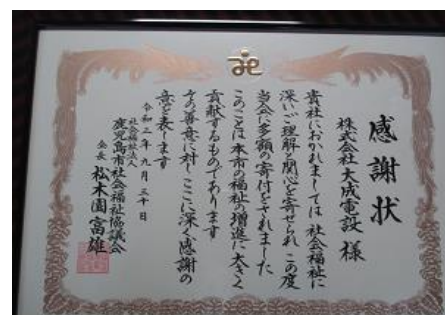 感謝状
株式会社 大成電設 様
貴社におかれましては 社会福祉に
深いご理解と関心を寄せられ この度
当会に多額の寄付をされました
このことは本市の福祉の増進に大きく
貢献するものであります
その善意に対し ここに深く感謝の
意を表します
令和三年九月三十日
社会福祉法人
鹿児島市社会福祉協議会
会長 松木園富雄